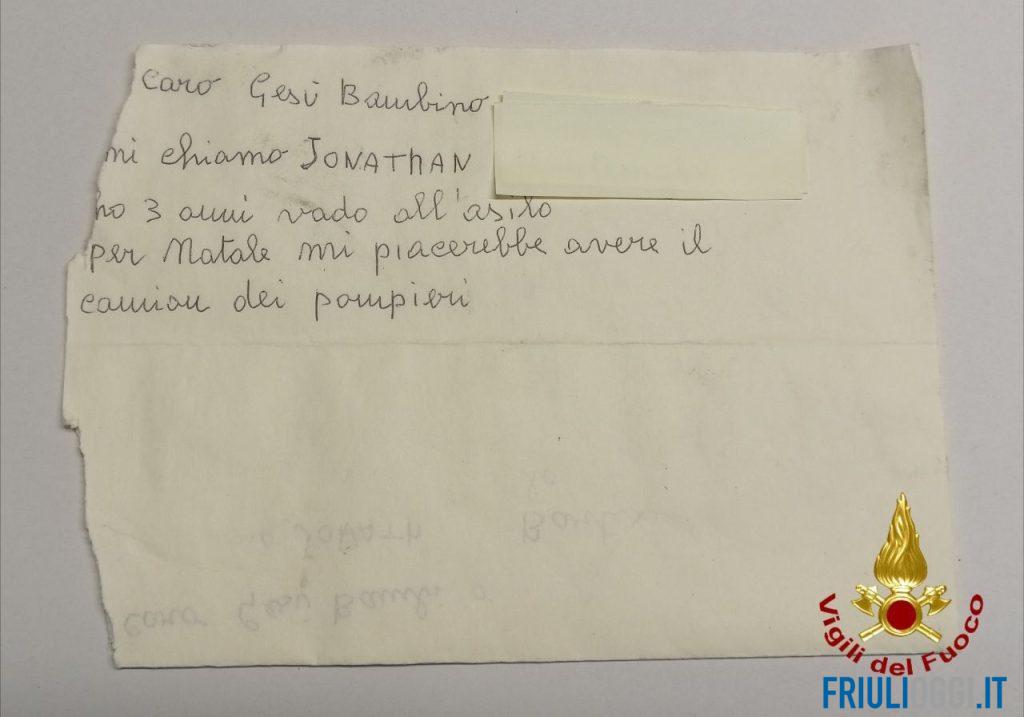 caro Gesù Bambino
mi chiamo JONATHAN
ho 3 anni vado all'asilo
per Natale mi piacerebbe avere il
camion dei pompieri
Vigili del Fuoco
FRIULIOGGI.IT